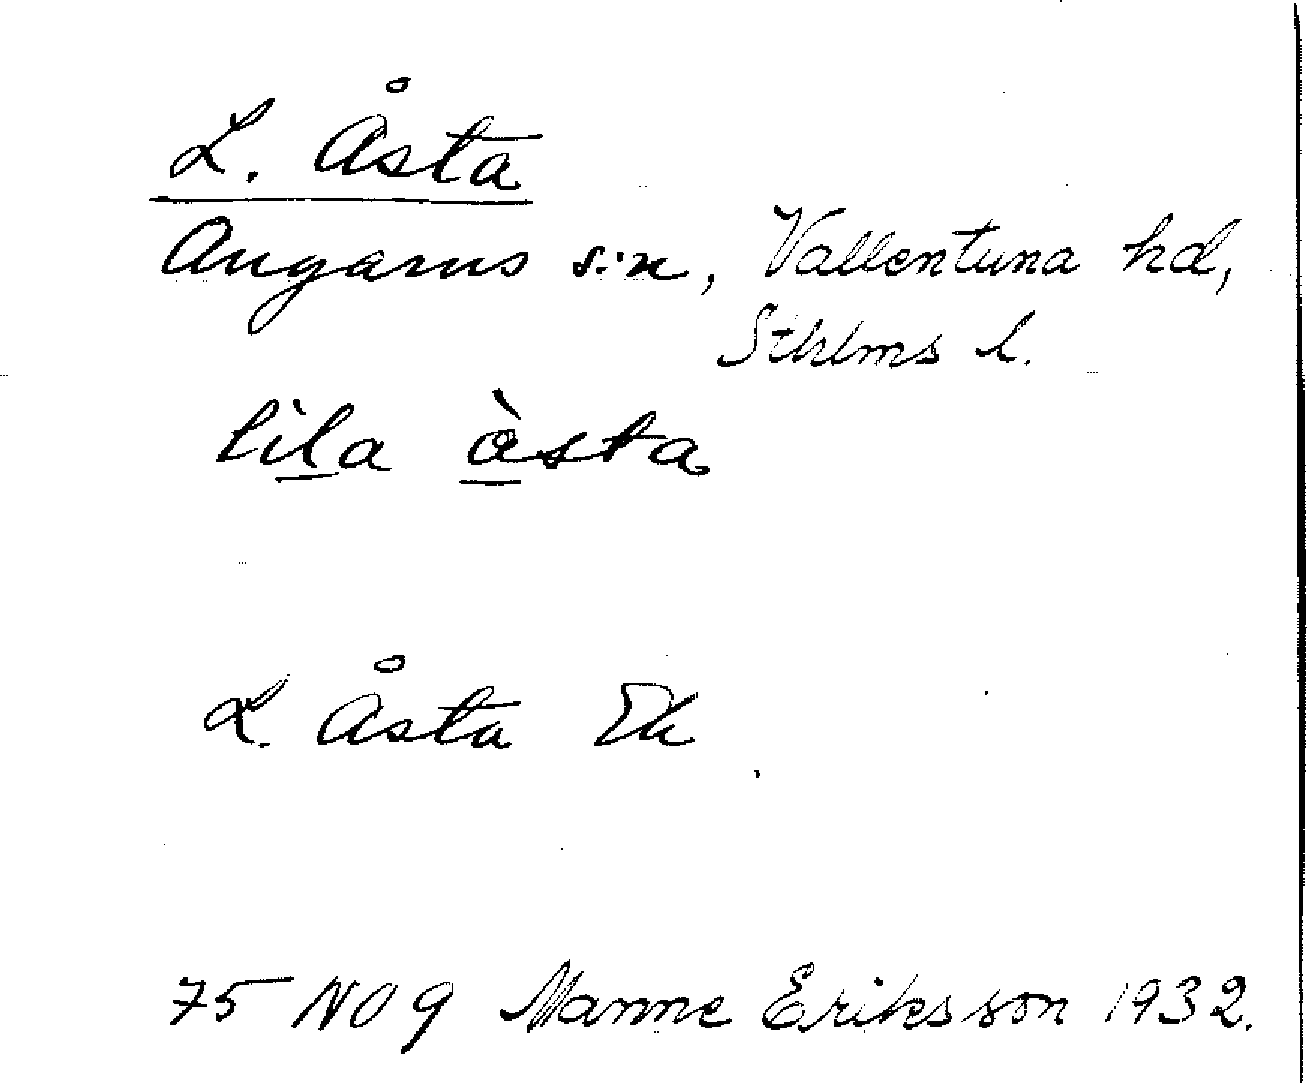 L. Åsta
Angarns s:n, Vallentuna hd,
Sthlms l.
lìla àsta
L. Åsta Ek
75 NO 9 Manne Eriksson 1932.